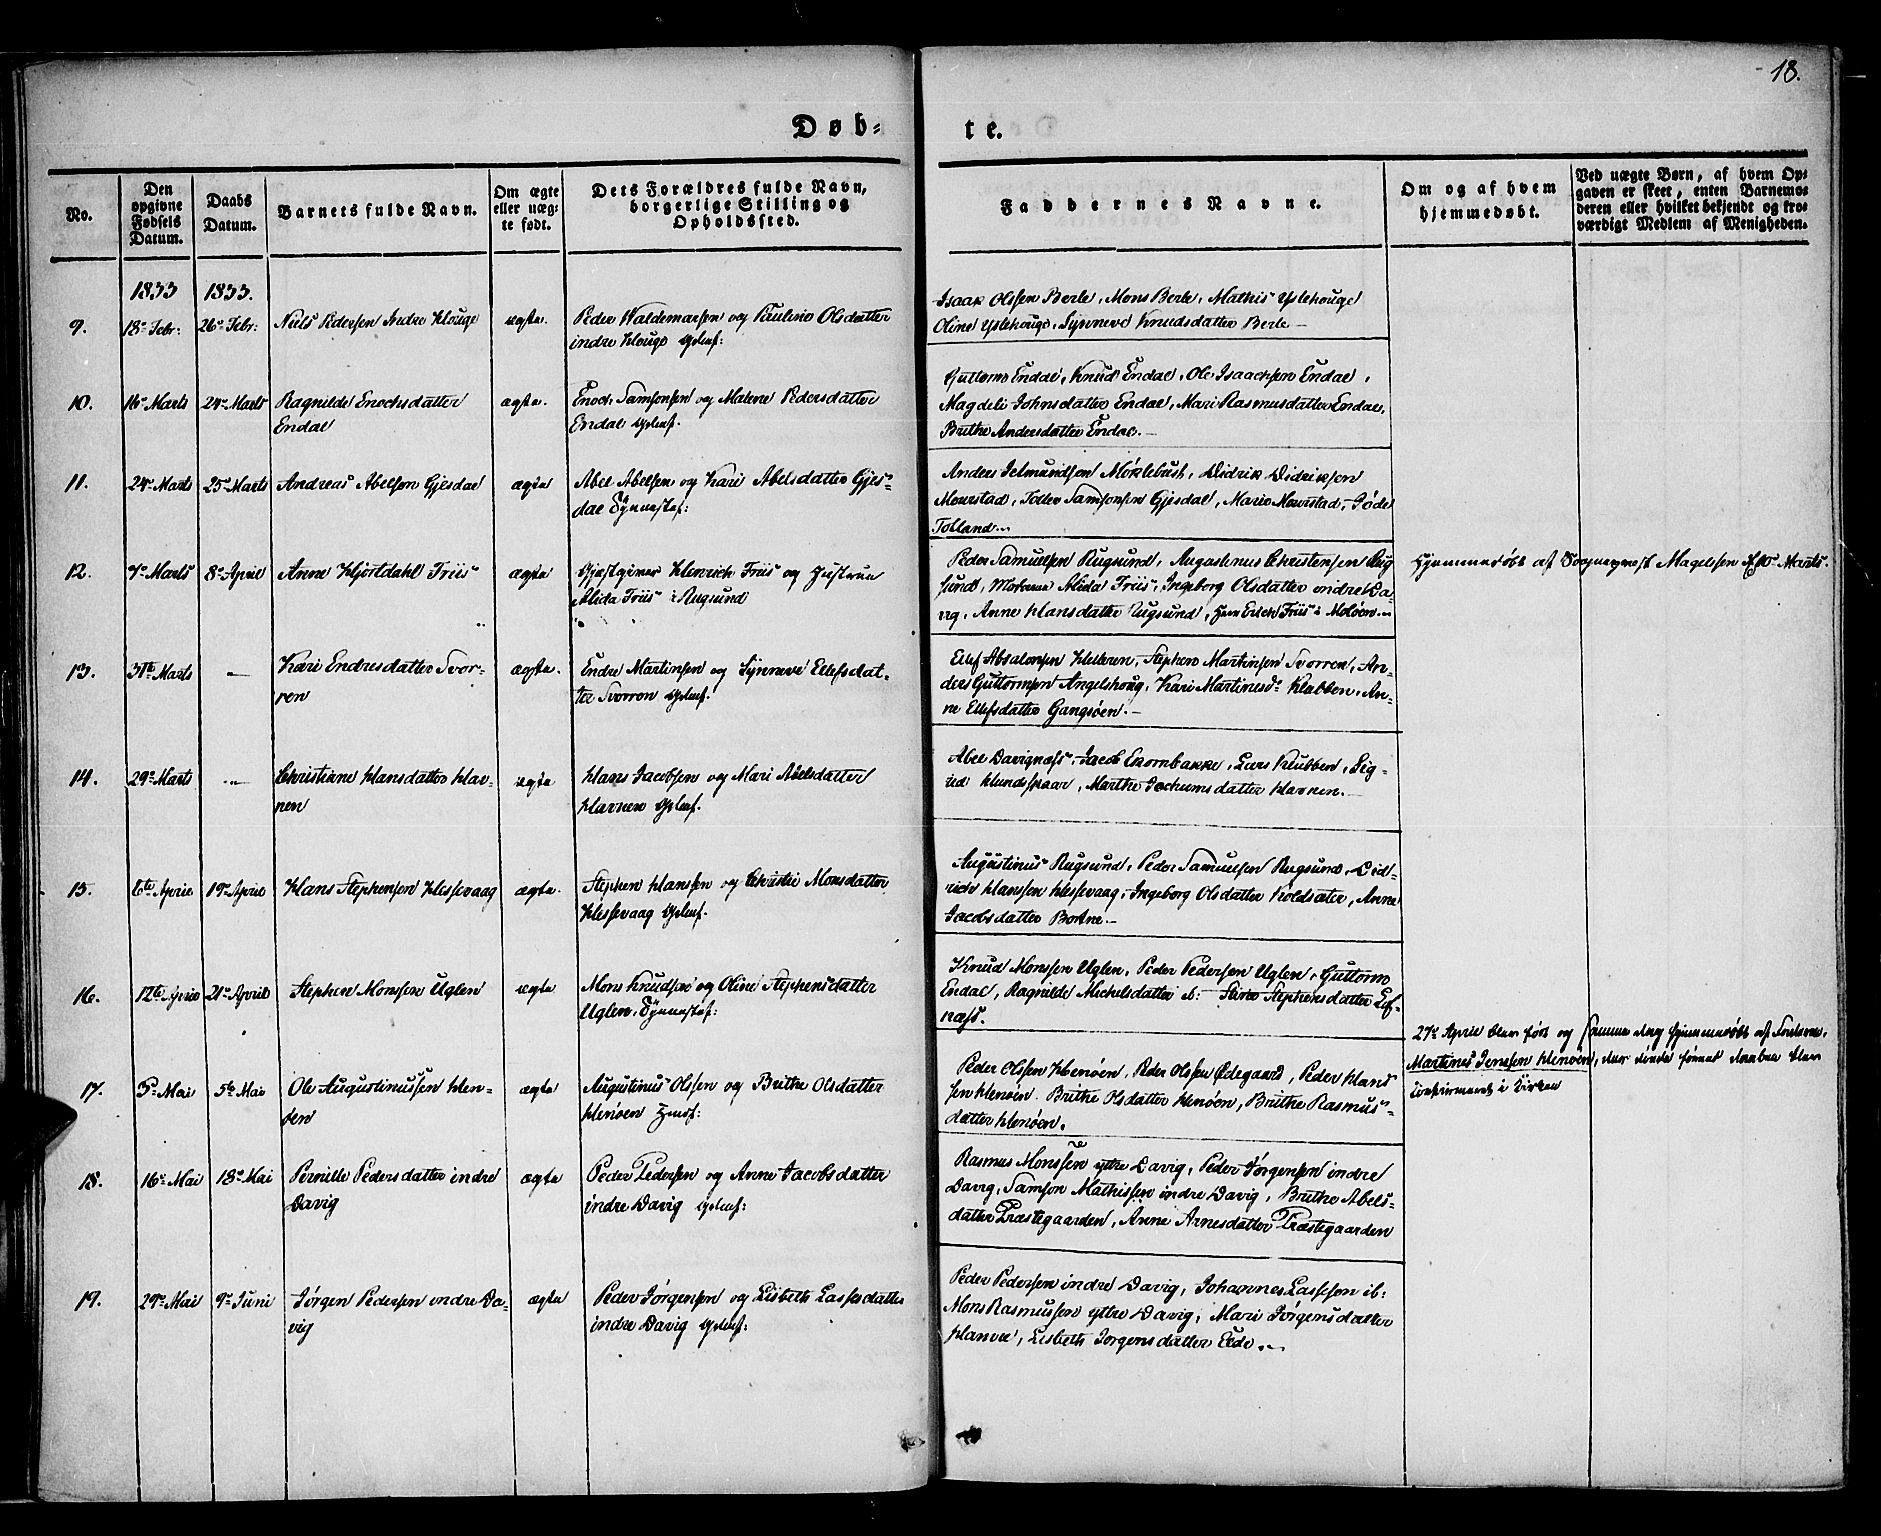 18.
Døb=
te.
No.
Den opgivne Fødsels Datum.
Daabs Datum.
Barnets fulde Navn.
Om ægte eller uæg= te født.
Dets Forældres fulde Navn, borgerlige Stilling og Opholdssted.
Faddernes Navne.
Om og af hvem hjemmedøbt.
Ved uægte Børn, af hvem Op= gaven er skeet, enten Barnemo= deren eller hvilket bekjendt og tro= værdigt Medlem af Menigheden.
1833 1833.
9. 18de Febr: 26de Febr: Niels Pedersen Indre Houge ægte. Peder Waldemarsen og Pauline Olsdatter
indre Houge
Isaak Olssen Berle, Mons Berle, Mathis Ystehouge
Oline Ystehouge, Synneve Knudsdatter Berle
10. 16de Marts 24de Marts Ragnilde Enochsdatter
Endal
ægte. Enoch Samsonsen og Malene Pedersdatter
Endal
Guttorm Endal, Knud Endal, Ole Isaachsen Endal,
Magdeli Johnsdatter Endal, Mari Rasmusdatter Endal,
Brithe Andersdatter Endal.
11. 24de Marts 25de Marts Andreas Abelsen Gjesdal ægte Abel Abelsen og Kari Abelsdatter Gjes=
dal
Anders Melmundsen Møklebust, Didrik Didriksen
Maurstad, Tollev Samsonsen Gjesdal, Marie Maurstad,
Totland
12. 7de Marts 8de April Anne Hjortdahl Friis ægte Gjæstgiver Henrich Friis og Hustrue
Alida Friis i Rugsund
Peder Samuelsen Rugsund, Augustinus Christensen Rug
sund, Alida Friis, Ingeborg Olsdatter indre Da=
vig, Anne Hansdatter Rugsund, Erich Friis i Moldøen
Hjemmedøbt af Sogneprest Magelsen Marts.
13. 31te Marts — Kari Endresdatter Svor=
ren
ægte. Endre Martinsen og Synneve Ellefsdat=
ter Svorren
Ellef Absalonsen Helleren, Stephen Martinsen Svorren, An=
ders Guttormsen Angelshoug, Kari Martinesd: Klubben, An=
ne Ellefsdatter Gangsøen.
14. 29de Marts — Christiane Hansdatter Hav=
nen
ægte Hans Jacobsen og Mari Abelsdatter
Havnen
Abel Davignæss, Jacob Lars Klubben, Sig=
rid Hundskaar, Marthe Jochumsdatter Havnen.
15. 6te April 19de April Hans Stephensen Hessevaag ægte. Stephen Hanssen og Christie Monsdatter
Hessevaag
Augustinus Rugsund, Peder Samuelsen Rugsund, Did=
rich Hanssen Hessevaag, Ingeborg Olsdatter Koldsæter, Anne
Jacobsdatter Bortne.
16. 12te April 21de April Stephen Monssen Uglen ægte Mons Knudsen og Oline Stephensdatter
Uglen
Knud Monssen Uglen, Peder Pedersen Uglen, Guttorm
Endal, Ragnilde Michelsdatter ib: Stephensdatter Lef=
næss.
17. 3de Mai 5te Mai Ole Augustinussen Hen=
øen
ægte Augustinus Olssen og Brithe Olsdatter
Henøen
Peder Olssen Henøen, Peder Olssen Ødegaard, Peder Hans
sen Henøen. Brithe Olsdatter Henøen, Brithe Rasmus=
datter Henøen.
27de April blev født og samme dag hjemmedøbt af
Martinus Jenssen Henøen,
i Kirken
18. 16de Mai 18de Mai Pernille Pedersdatter indre
Davig
ægte Peder Pedersen og Anne Jacobsdatter
indre Davig
Rasmus Monssen ytre Davig, Peder Jørgensen indre
Davig, Samson Mathissen indre Davig, Brithe Abels=
datter Præstegaarden, Anne Arnesdatter Præstegaarden
19. 29de Mai 9de Juni Jørgen Pedersen indre Da=
vig
ægte Peder Jørgensen og Lisbeth Lassesdatter
indre Davig
Peder Pedersen indre Davig, Johannes Lassesen ib:
Mons Rasmussen ytre Davig, Mari Jørgensdatter
Lisbeth Jørgensdatter Eide.